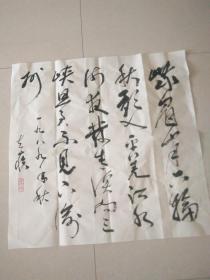 峨眉山月半輪
秋影入平羌江水
流夜發清溪向三
峡思君不見下渝
州
一九八九年秋